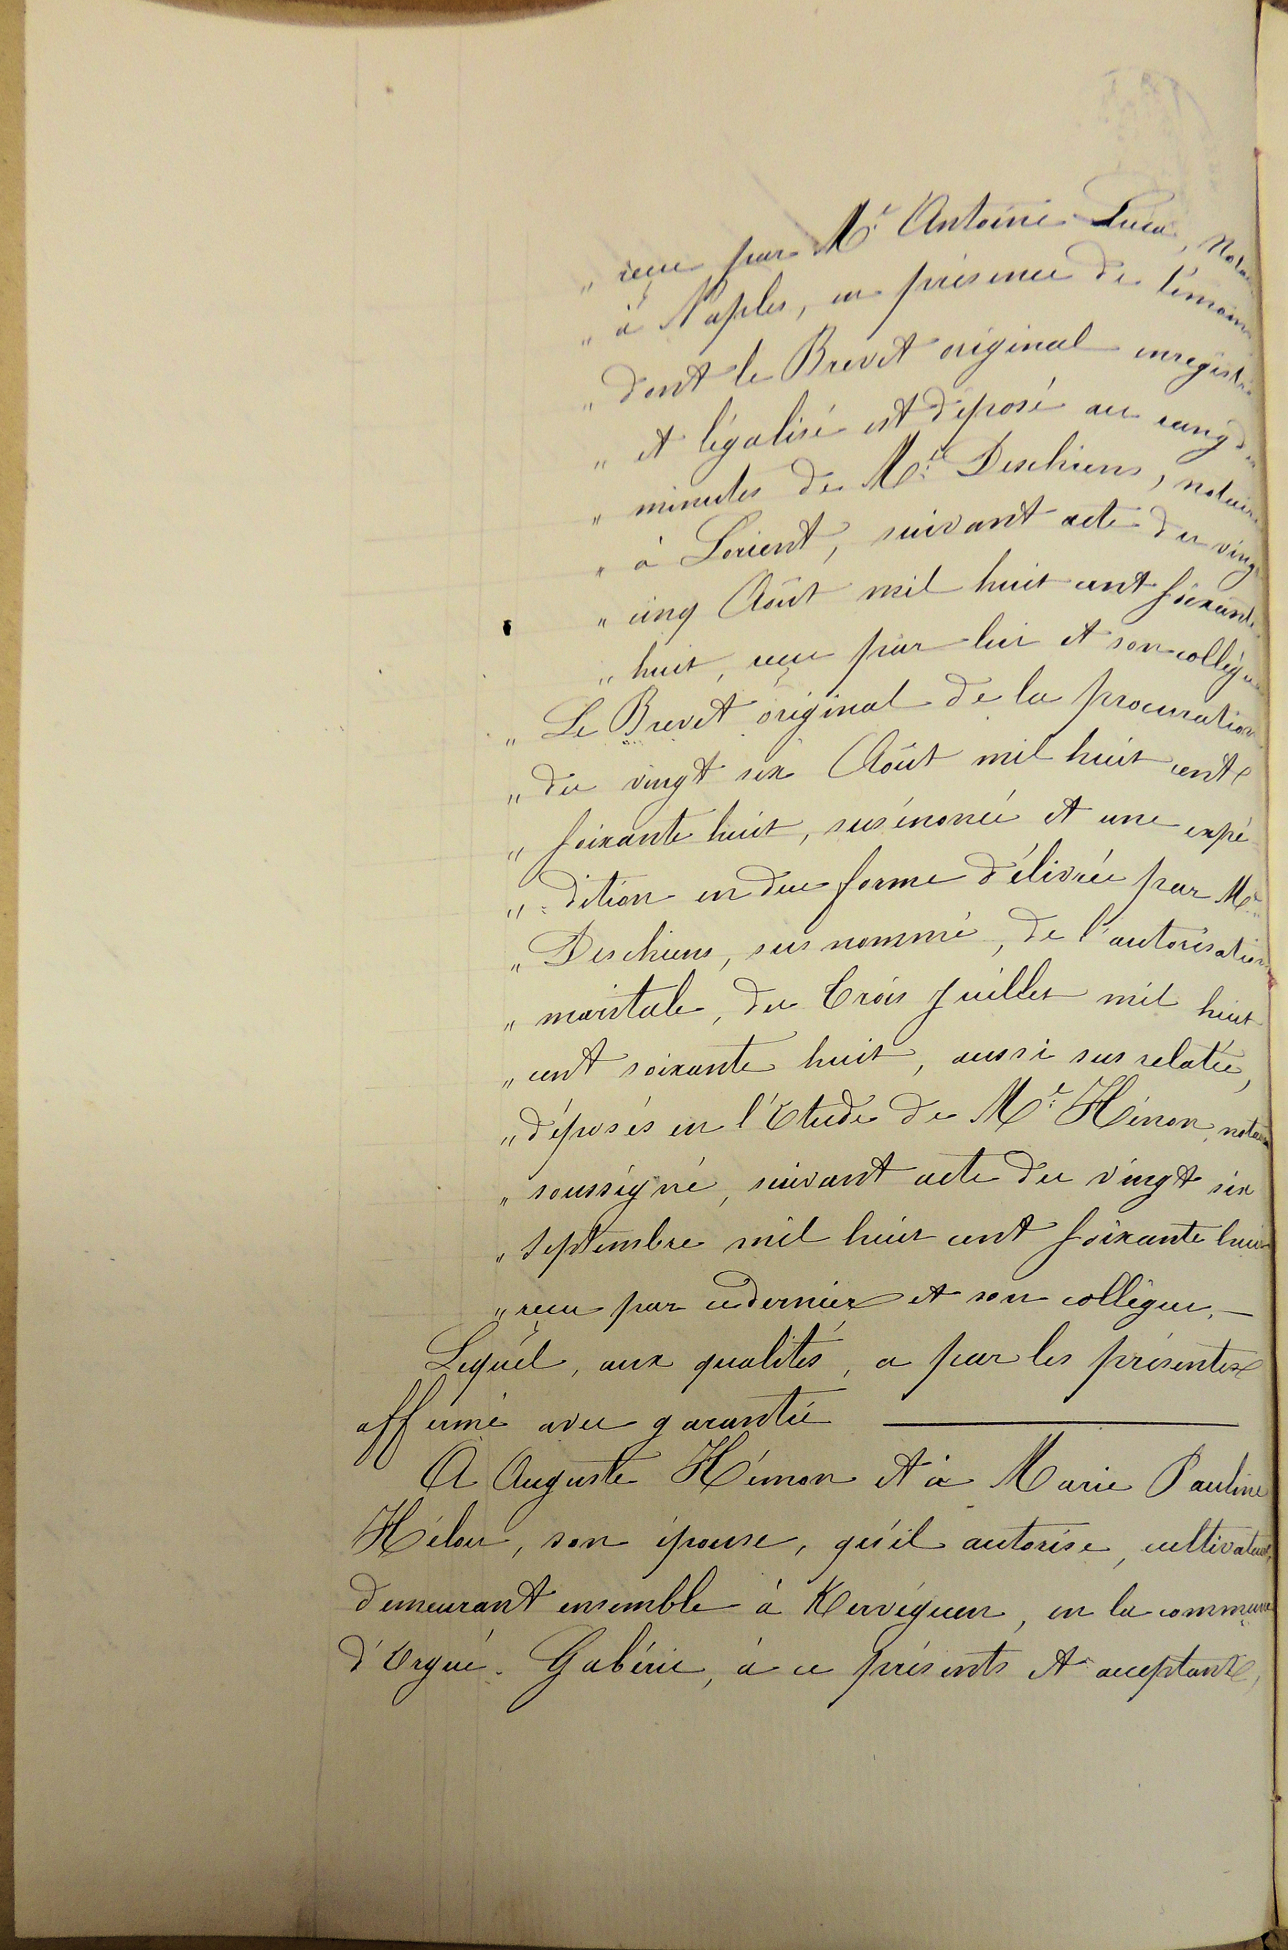 „ reçue par Me Antoine Luca, Notaire
„ à Naples, en présence de témoins
„ dont le Brevet original enregistré
„ et légalisé est déposé au rang des
„ minutes de Me Deschiens, notaire
„ à Lorient, suivant acte du vingt
„ cinq Août mil huit cent soixante
„ huit, reçu par lui et son collègue
„ Le Brevet original de la procuration
„ du vingt six Août mil huit cent
„ soixante huit, susénoncée et une expé
„ =dition en due forme délivrée par Me
„ Deschiens, sus nommé, de l'autorisation
„ maritale, du Trois Juillet mil huit
„ cent soixante huit, aussi sus relatée,
„ déposés en l'Etude de Me Hémon, notaire
„ soussigné, suivant acte du vingt six
„ septembre mil huit cent soixante huit
„ reçu par ce dernier et son collègue.
Lequel, aux qualités, a par les présentes
affermé avec garantie
A Auguste Hémon et à Marie Pauline
Hélou, son épouse, qu'il autorise, cultivateurs,
demeurant ensemble à Kervéguen, en la commune
d'Ergué-Gabéric, à ce présents et acceptant,